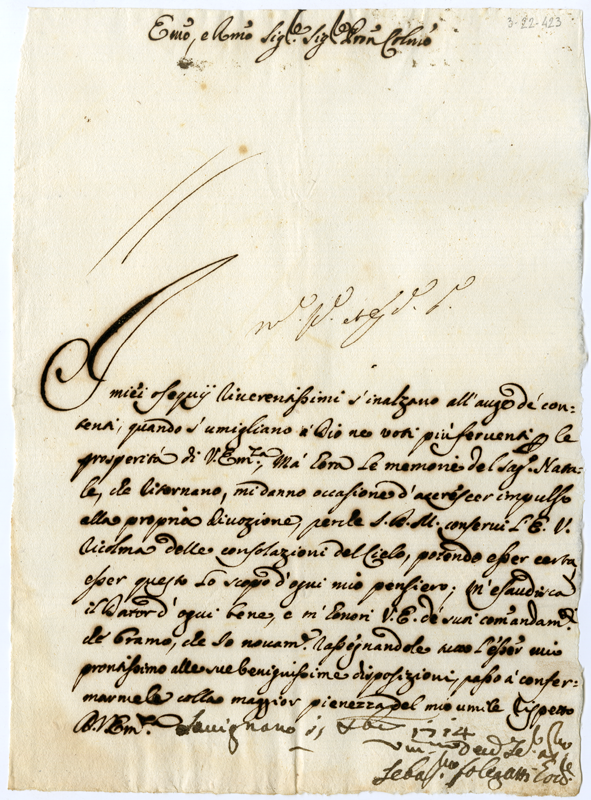 3-22-423
Emo, e Rmo Sig.r Sig.r Pron Colmo
I miei ossequij riverentissimi s'inalzano all'auge de' con-
tenti, quando s'umigliano à Dio ne voti più ferventi p le
prosperità di V. Em.za; Mà hora le memorie del Sag. Natta-
le, che ritornano, mi danno occasione d'accrescer impulso
alla propria divozione, perche S. D. M. conservi l'E. V.
ricolma delle consolazioni del Cielo, potendo esser certa,
esser questo lo scopo d'ogni mio pensiero; M'esaudisca
il Dator d'ogni bene, e m'honori V. E. de suoi comandam.ti
che bramo, che Io novam.te rassegnandole tutto l'esser mio
prontissimo alle sue benignissime disposizioni, passo à confer-
marmele colla maggior pienezza del mio umile rispetto
D. V. Em.za Savignano 1714